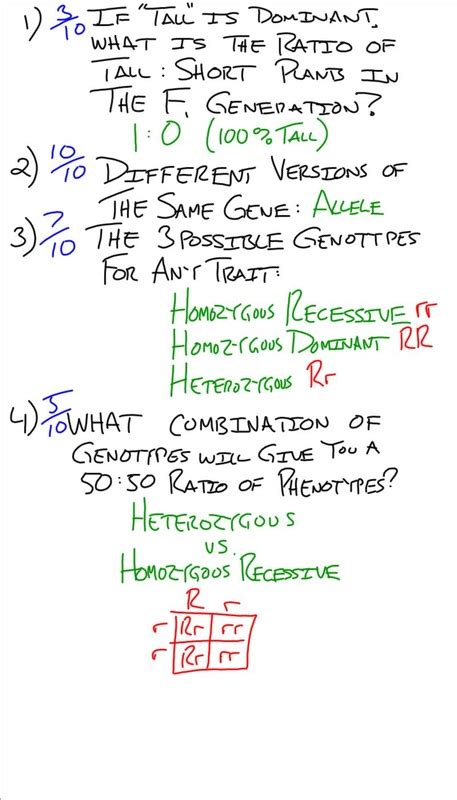 1) 3/10 IF "TALL" IS DOMINANT,
WHAT IS THE RATIO OF
TALL : SHORT PLANTS IN
THE F, GENERATION?
1:0 (100% TALL)
2) 10/10 DIFFERENT VERSIONS OF
THE SAME GENE: ALLELE
3) 7/10 THE 3 POSSIBLE GENOTYPES
FOR ANY TRAIT:
HOMOZYGOUS RECESSIVE rr
HOMOZYGOUS DOMINANT RR
HETEROZYGOUS Rr
4) 5/10 WHAT COMBINATION OF
GENOTYPES WILL GIVE YOU A
50:50 RATIO OF PHENOTYPES?
HETEROZYGOUS
VS.
HOMOZYGOUS RECESSIVE
R r
r Rr rr
r Rr rr